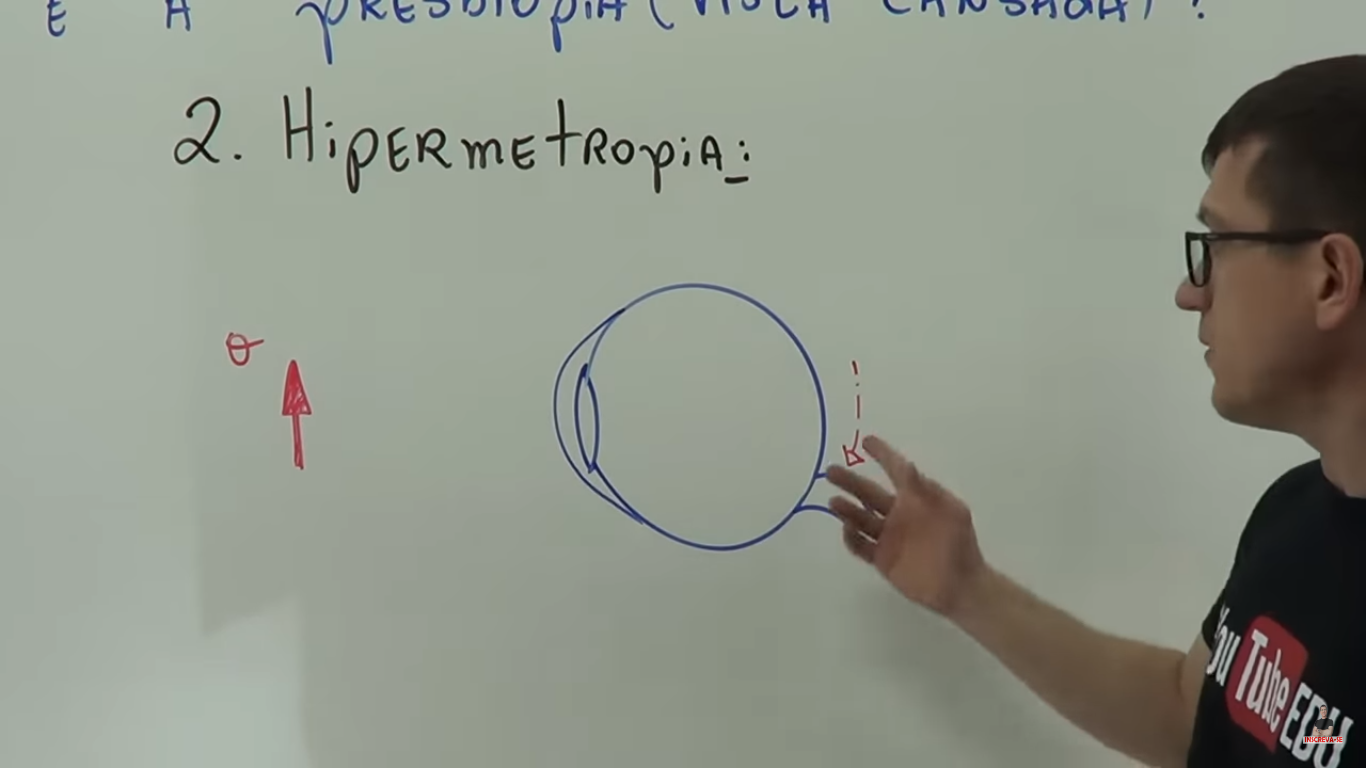 E A PRESBIOPIA (VISTA CANSADA)?
2. HiPERMETROPiA:
O
You Tube EDU
INSCREVA-SE